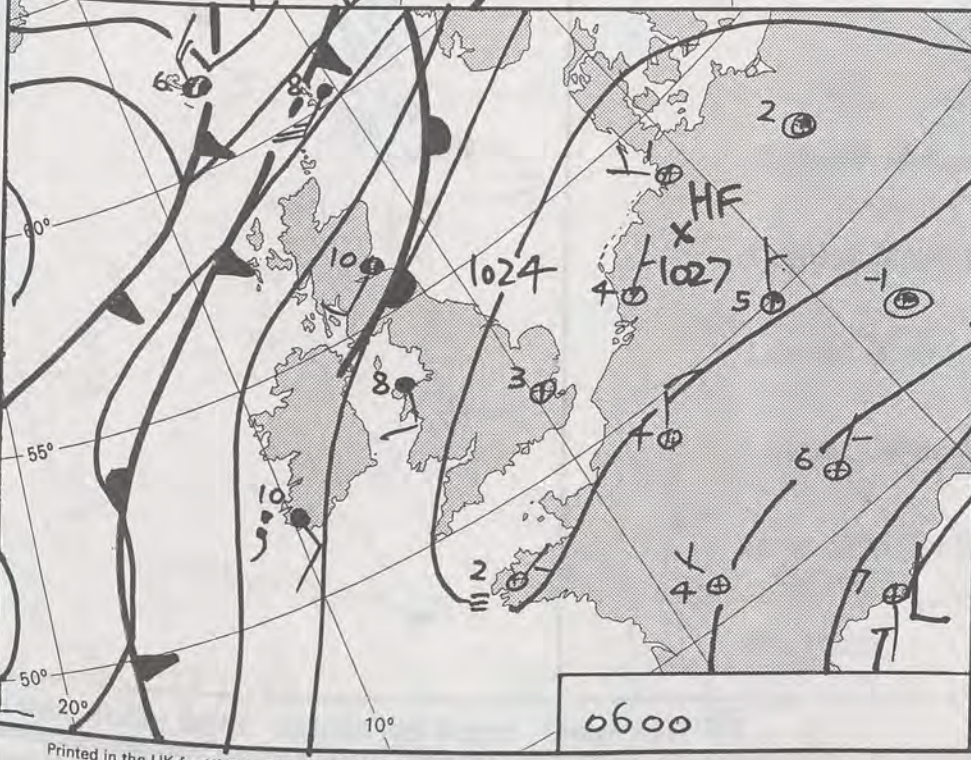 6
8
2
60°
10
HF
1024
1027
4
5
-1
8
3
4
55°
6
10
2
4
7
L
50°
20°
10°
0600
Printed in the UK for